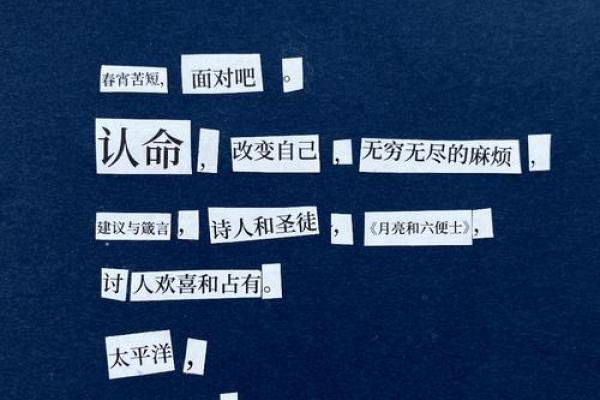 春宵苦短，面对吧。
认命，改变自己，无穷无尽的麻烦，
建议与箴言，诗人和圣徒，《月亮和六便士》，
讨人欢喜和占有。
太平洋，